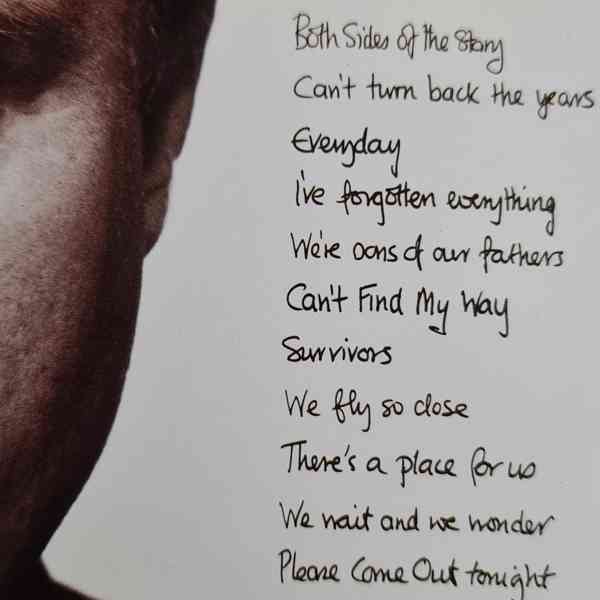 Both Sides Of the Story
Can't turn back the years
Everyday
I've forgotten everything
We're sons of our fathers
Can't Find My Way
Survivors
We fly so close
There's a place for us
We wait and we wonder
Please Come Out tonight